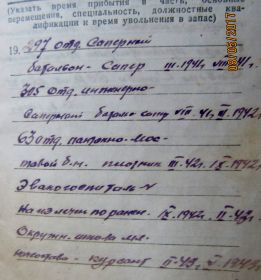 (Указать время прибытия в часть, основные
перемещения, специальность, должностные ква-
лификации и время увольнения в запас)
19. 297 отд. Саперный
батальон - Сапер III.1941, VIII.41г.
325 Отд. инженерно-
Саперный батальон VIII.41г, III.1942
63 отд. понтонно-мос-
товой б-н. III-42г. IX.1942г.
Эвакогоспиталь
На излечен. по ранен. IX.1942г. II-43г.
Окружн. школа мл.
- курсант II-43,
06/05/2017